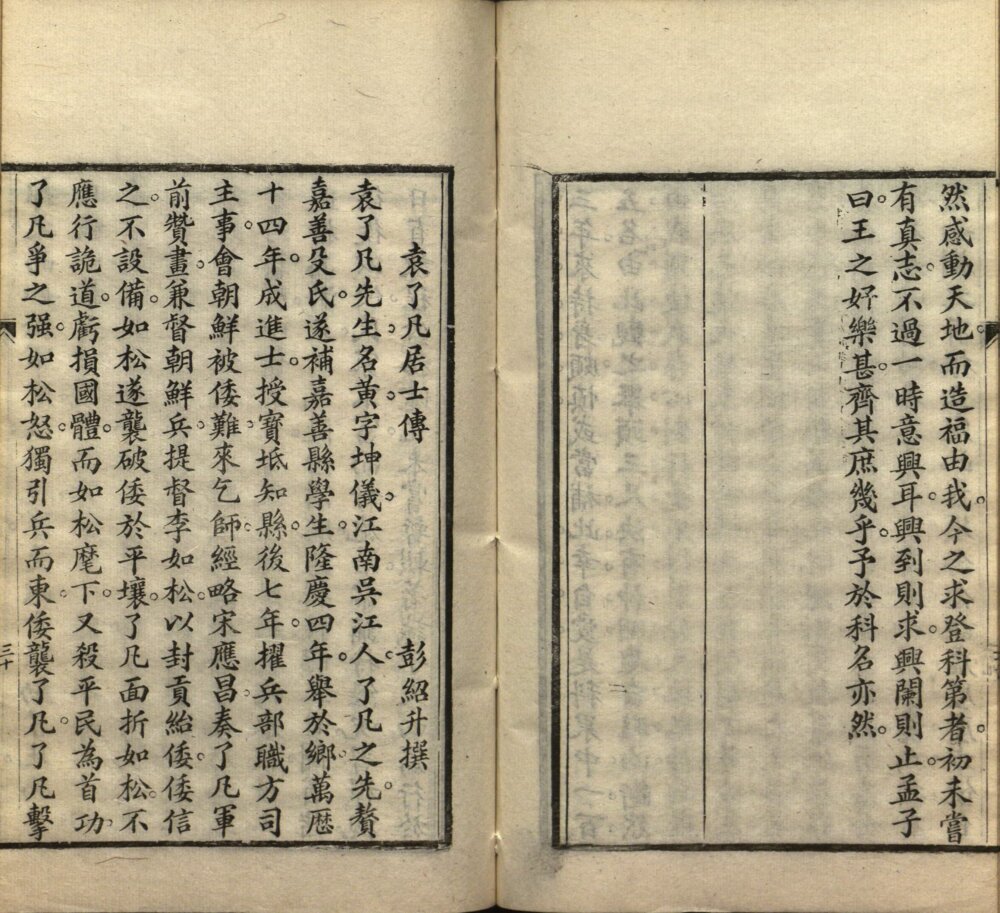 然感動天地而造福由我今之求登科第者初未嘗
有真志不過一時意興耳興到則求興闌則止孟子
曰王之好樂甚齊其庶幾乎予於科名亦然
袁了凡居士傳 彭紹升撰
袁了凡先生名黃字坤儀江南吳江人了凡之先贅
嘉善殳氏遂補嘉善縣學生隆慶四年舉於鄉萬歷
十四年成進士授寶坻知縣後七年擢兵部職方司
主事會朝鮮被倭難來乞師經略宋應昌奏了凡軍
前贊畫兼督朝鮮兵提督李如松以封貢紿倭倭信
之不設備如松遂襲破倭於平壤了凡面折如松不
應行詭道虧損國體而如松麾下又殺平民為首功
了凡爭之强如松怒獨引兵而東倭襲了凡了凡擊
三十